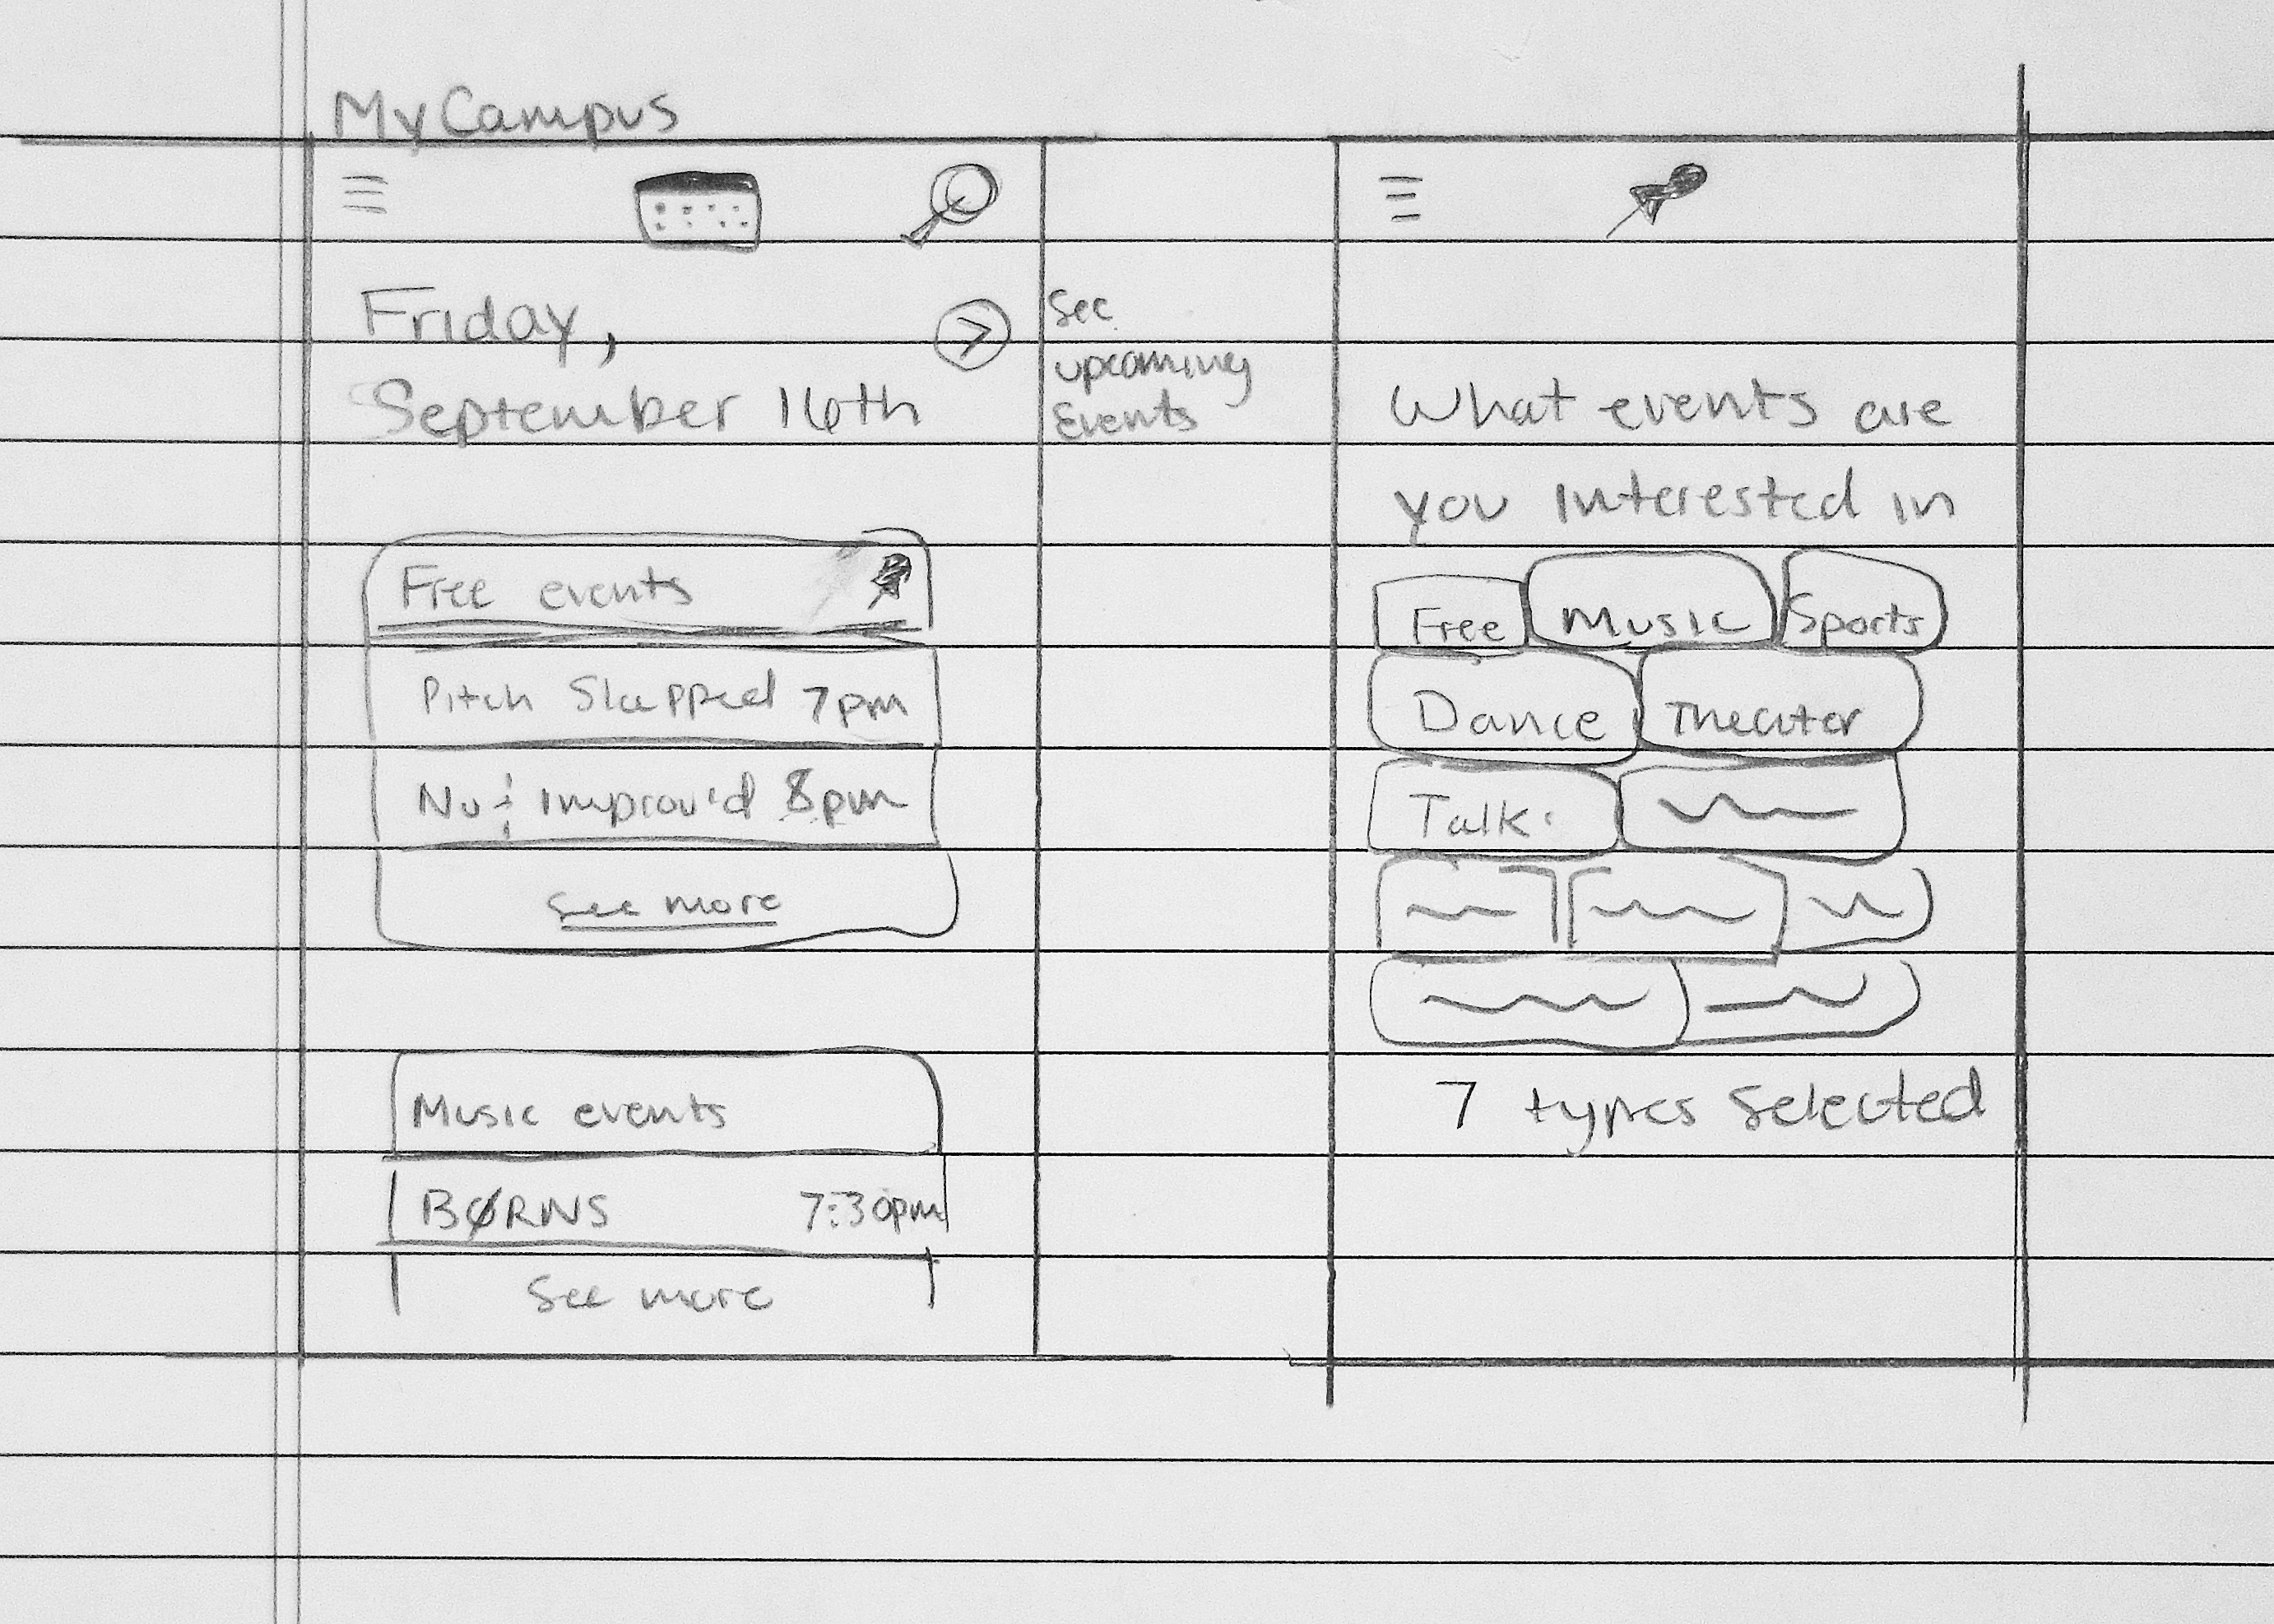 MyCampus
Friday,
September 16th
See
upcoming
Events
Free events
Pitch Slapped 7pm
Nu & Improv'd 8pm
See more
Music events
BØRNS 7:30pm
See more
What events are
you interested in
Free Music Sports
Dance Theater
Talk
7 types selected